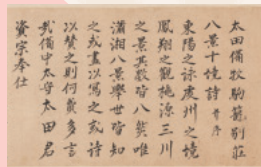 太田備牧駒籠別荘
八景十境詩 并序
東陽之詠處州之境
鳳翔之觀桃源三川
之景其数皆八奘唯
瀟湘八景學世皆知
之或畫以写之或詩
以賛之則何羨多言
哉備中太守太田君
資宗奉仕